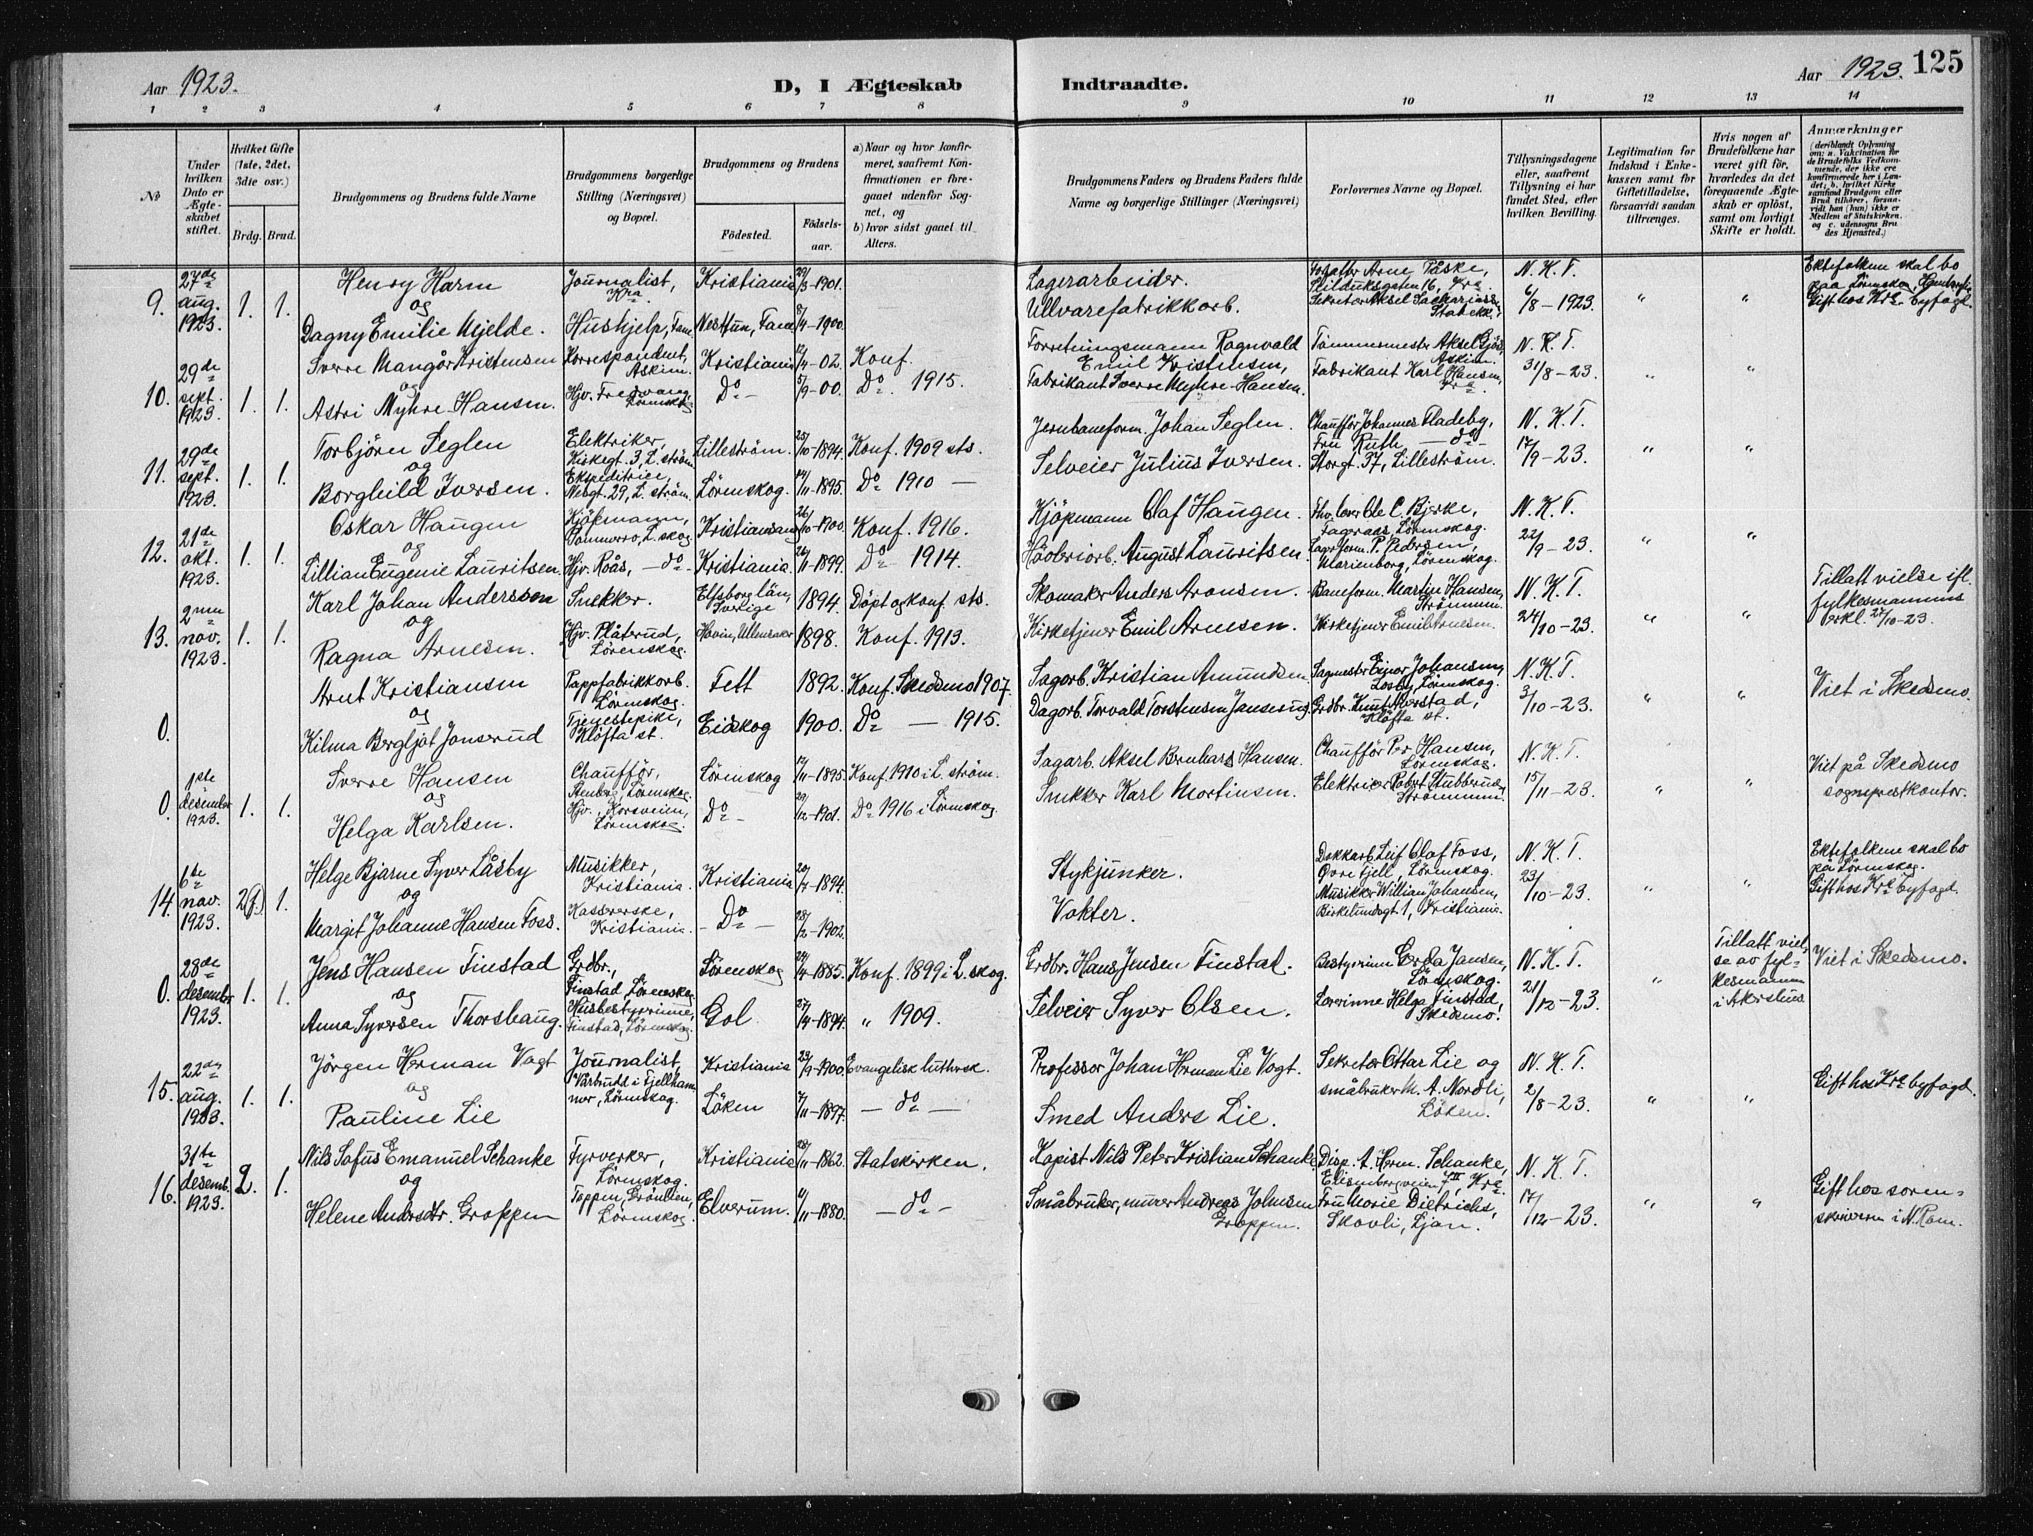 Aar 1923.
D, I Ægteskab Indtraadte.
Aar 1923. 125
1 2 3 4 5 6 7 8 9 10 11 12 13 14
No
Under hvilken Dato er Ægteskabet stiftet.
Hvilket Gifte (1ste, 2det, 3die osv.)
Brdg. Brud.
Brudgommens og Brudens fulde Navne
Brudgommens borgerlige Stilling (Næringsvei) og Bopæl.
Brudgommens og Brudens
Födested. Födselsaar.
a) Naar og hvor konfirmeret, saafremt Konfirmationen er foregaaet udenfor Sognet, og
b) hvor sidst gaaet til Alters.
Brudgommens Faders og Brudens Faders fulde Navne og borgerlige Stillinger (Næringsvei)
Forlovernes Navne og Bopæl.
Tillysningsdagene eller, saafremt Tillysning ei har fundet Sted, efter hvilken Bevilling.
Legitimation for Indskud i Enkekassen samt for Giftetilladelse, forsaavidt saadan tiltrænges.
Hvis nogen af Brudefolkene har været gift för, hvorledes da det foregaaende Ægteskab er oplöst, samt om lovligt Skifte er holdt.
Anmærkninger
(deriblandt Oplysning om: a. Vakcination for de Brudefolks Vedkommende, der ikke ere konfirmerede her i Landet; b. hvilket Kirkesamfund Brudgom eller Brud tilhörer, forsaavidt han (hun) ikke er Medlem af Statskirken, og c. udensogns Brudes Hjemsted.)
9. 27de aug. 1923. 1. 1.
Henry Harm og Dagny Emilie Mjelde.
Journalist, Kra. Hushjelp, Fane
Kristiania 29/3-1901.
Nesttun, Fane 8/4-1900.
Lagerarbeider.
Ullvarefabrikkarb.
Arne Påske, 16, Kra
Sekretær Aksel Stabekk.
N. K. T. 6/8-1923. " "
Ektefolkene skal bo paa Lörenskog,
Gift hos Kra byfogd.
10. 29de sept. 1923. 1. 1.
Sverre Mangår Kristensen og Astri Myhre Hansen.
Korrespondent, Askim.
Hjv. Fredvang, Lörenskog
Kristiania 12/4-02 Konf.
Do - 5/9-00. Do 1915.
Forretningsmann Ragnvald Emil Kristensen,
Fabrikant Sverre Myhre-Hansen.
Tömmermester Aksel Askim.
Fabrikant Karl Hansen, Kra
N. K. T. 31/8-23. " "
11. 29de sept. 1923. 1. 1.
Torbjörn Seglen og Borghild Iversen.
Elektriker, Kirkegt. 3, L. ström
Ekspeditrice, Nesgt. 29, L. ström.
Lilleström. 25/10-1894. Konf. 1909 sts.
Lörenskog. 17/11-1895. Do 1910 -
Jernbaneform. Johan Seglen.
Selveier Julius Iversen.
Chauffør Johannes Fladeby,
Fru Ruth - do - Storgt. 37, Lilleström.
N. K. T. 17/9-23. " "
12. 21de okt. 1923. 1. 1.
Oskar Haugen og Lillian Eugenie Lauritsen.
Kjöpmann, Sommerro, L. skog
Hjv. Roås, - do -
Kristiansand 26/10-1900. Konf. 1916.
Kristiania. 26/11-1899. Do 1914.
Kjöpmann Olaf Haugen.
August Lauritsen.
Ole C. Bjerke, Fageraas Lörenskog.
Lagerform. P. Pedersen, Marienborg, Lörenskog.
N. K. T. 22/9-23. " "
13. 2nen nov. 1923. 1. 1.
Karl Johan Andersson og Ragna Arnesen.
Snekker.
Hjv. Plåterud, Lörenskog.
Elfsborg län, Sverige 1894. Döpt og konf. sts.
Hovin, Ullensaker 1898. Konf. 1913.
Skomaker Anders Aronsen.
Kirketjener Emil Arnesen.
Baneform. Martin Hansen, Strömmen.
Kirketjener Emil Arnesen.
N. K. T. 24/10-23. " "
Tillatt vielse ifl. fylkesmannens erkl. 27/10-23.
0.
Arnt Kristiansen og Kilma Bergljot Jonserud
Pappfabrikkarb. Lörenskog.
Tjenestepike, Klöfta st.
Fett 1892. Konf. Skedsmo 1907.
Eidskog 1900. Do - 1915.
Sagarb. Kristian Amundsen
Dagarb. Torvald Torstensen Janserud
Sagmester Einar Johansen, Losby, Lörenskog.
Grdbr. Knut Klöfta st.
N. K. T. 3/10-23. " "
Viet i Skedsmo.
0. 1ste desember 1923. 1. 1.
Sverre Hansen og Helga Karlsen.
Chauffør, Stenberg, Lörenskog.
Hjv., Korsveien, Lörenskog.
Lörenskog 17/11-1895. Konf. 1910 i L. ström.
Do - 29/12-1901. Do 1916 i Lörenskog.
Sagarb. Aksel Bernhard Hansen.
Snekker Karl Martinsen.
Chauffør Per Hansen, Lörenskog.
Elektriker Robert Stubberud, Strömmen.
N. K. T. 15/11-23. " "
Viet på Skedsmo sogneprestkontor.
14. 6te nov. 1923. 2(f.) 1.
Helge Bjarne Syver Låsby og Margit Johanne Hansen Foss.
Musikker, Kristiania.
Kassererske, Kristiania.
Kristiania 20/7-1894.
- Do - 28/2-1902.
Stykjunker.
Vokter.
Dekkarb. Leif Olaf Foss, Övre Fjell, Lörenskog.
Musikker William Johansen, Birkelundsgt 1, Kristiania.
N. K. T. 23/10-23. " "
Ektefolkene skal bo på Lörenskog.
Gift hos Kra byfogd.
0. 28de desember 1923. 1. 1.
Jens Hansen Finstad og Anna Syversen Thorshaug.
Grdbr., Finstad Lörenskog
Husbestyrerinne, Finstad, Lörenskog.
Lörenskog 24/4-1885. Konf. 1899 i L. skog.
Gol 27/4-1894. " 1909.
Grdbr. Hans Jensen Finstad.
Selveier Syver Olsen.
Bestyrerinne Gerda Jansen, Lörenskog.
Lærerinne Helga Finstad, Skedsmo.
N. K. T. 21/12-23. "
Tillatt vielse av fylkesmannen i Akershus
Viet i Skedsmo.
15. 22de aug. 1923. 1. 1.
Jörgen Herman Vogt og Pauline Lie
Journalist, Vårbudd i Fjellhammer, Lörenskog.
Kristiania 23/9-1900. Evangelisk luthersk.
Löken 7/11-1897. - do -
Professor Johan Herman Lie Vogt.
Smed Anders Lie.
Sekretær Ottar Lie og småbruker M. A. Nordli, Löken.
N. K. T. 2/8-23. " "
Gift hos Kra byfogd.
16. 31te desemb. 1923. 2. 1.
Nils Sofus Emanuel Schanke og Helene Andersdtr. Groppen
Fyrverker, Lörenskog.
Toppen, Grönlien, Lörenskog.
Kristiania 28/11-1862. Statskirken.
Elverum. 6/11-1880. - do -
Kopist Nils Peter Kristian Schanke
Småbruker, murer Andreas Johnsen Groppen.
Disp. A. Herm. Schanke, Elisenbergveien 7 III Kra
Fru Marie Dietrichs, Skovli, Ljan.
N. K. T. 17/12-23. " "
Gift hos sorenskriveren i N. Rom.